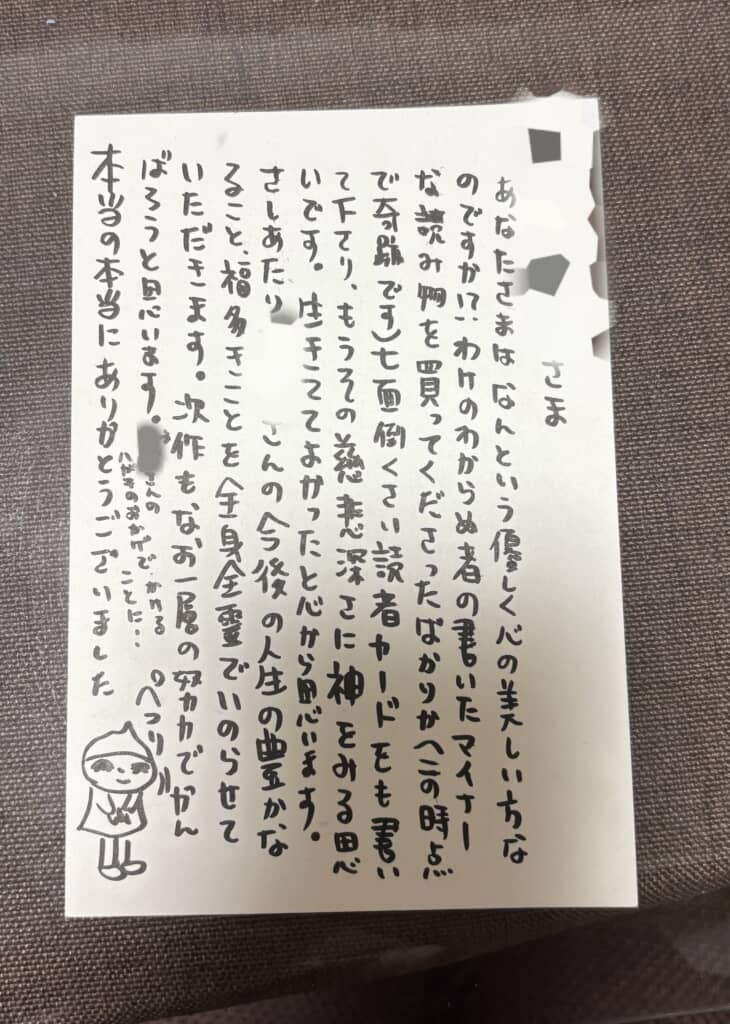 さま
あなたさまは なんという優しく心の美しい方な
のですか!? わけのわからぬ者の書いたマイナー
な読み物を買ってくださったばかりか(この時点
で奇跡です)七面倒くさい読者カードをも書い
て下さり、もうその慈悲深さに神をみる思
いです。生きててよかったと心から思います。
さしあたり
さんの今後の人生の豊かな
ること、福多きことを全身全霊でいのらせて
いただきます。次作もなお一層の努力でがん
ばろうと思います。
さんの
ハガキのおかげで、がんばる
ことに・・
ぺこり
本当の本当にありがとうございました